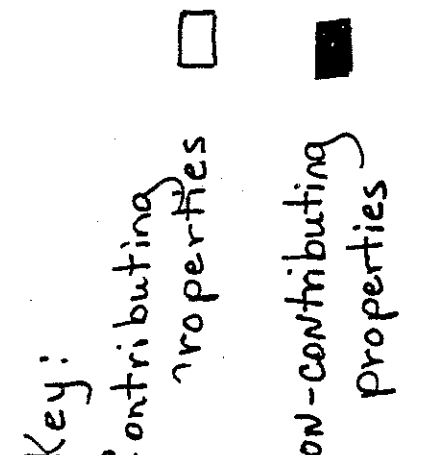 Key:
Contributing
properties
Non-contributing
properties